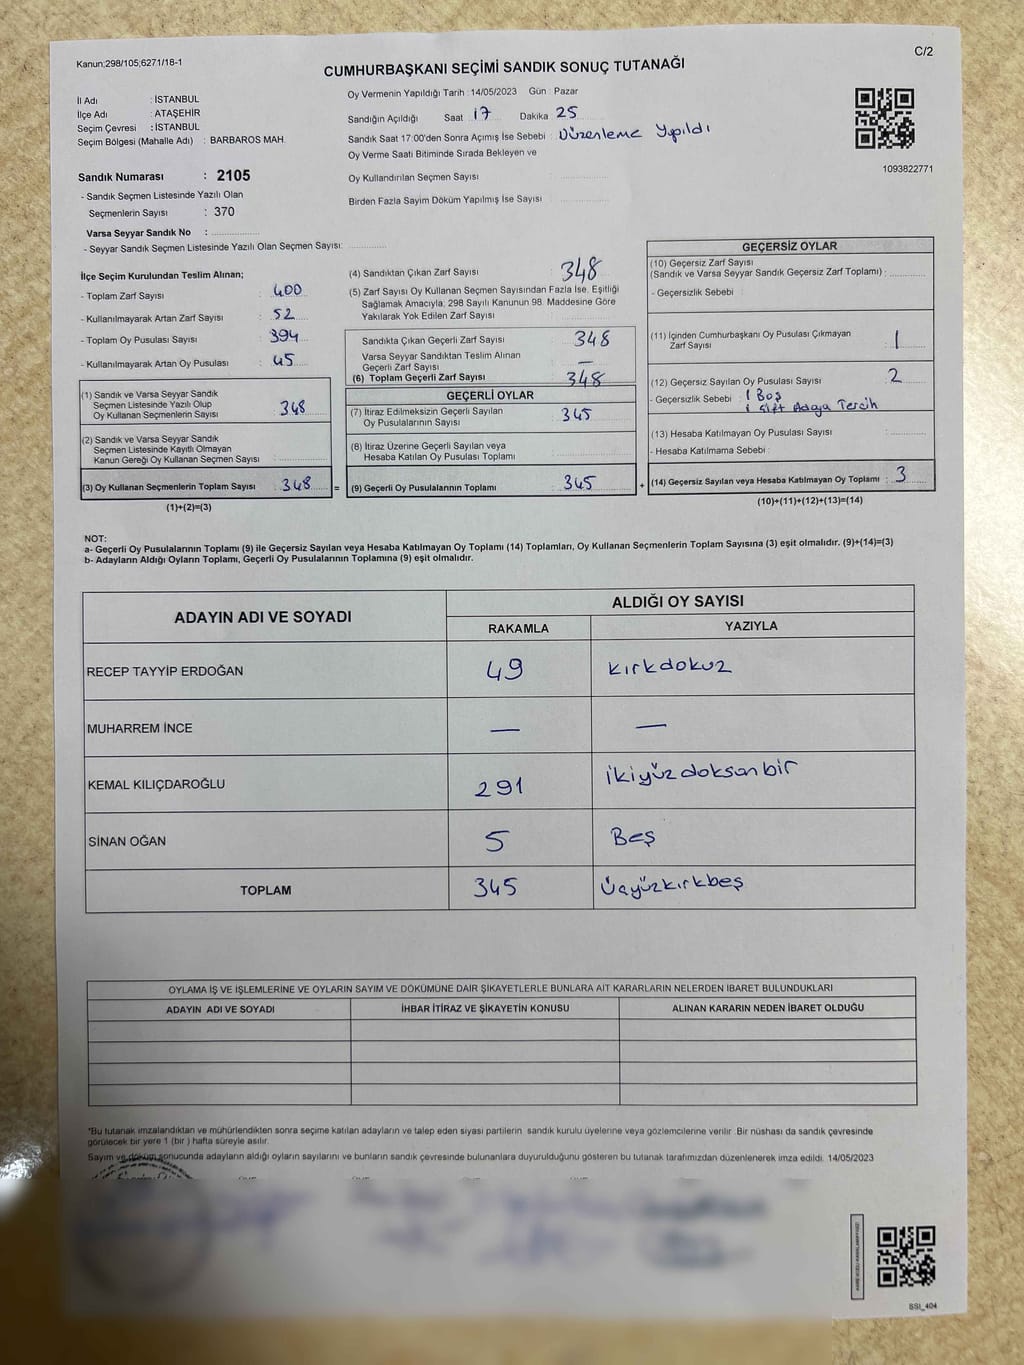 Kanun;298/105;6271/18-1
C/2
CUMHURBAŞKANI SEÇİMİ SANDIK SONUÇ TUTANAĞI
İl Adı : İSTANBUL
İlçe Adı : ATAŞEHİR
Seçim Çevresi : İSTANBUL
Seçim Bölgesi (Mahalle Adı) : BARBAROS MAH.
Oy Vermenin Yapıldığı Tarih : 14/05/2023 Gün : Pazar
Sandığın Açıldığı Saat 17 Dakika 25
Sandık Saat 17:00'den Sonra Açımış İse Sebebi : Düzenleme Yapıldı
Oy Verme Saati Bitiminde Sırada Bekleyen ve
Oy Kullandırılan Seçmen Sayısı
Birden Fazla Sayim Döküm Yapılmış İse Sayısı
1093822771
Sandık Numarası : 2105
- Sandık Seçmen Listesinde Yazılı Olan
Seçmenlerin Sayısı : 370
Varsa Seyyar Sandık No :
- Seyyar Sandık Seçmen Listesinde Yazılı Olan Seçmen Sayısı:
İlçe Seçim Kurulundan Teslim Alınan;
- Toplam Zarf Sayısı : 400
- Kullanılmayarak Artan Zarf Sayısı : 52
- Toplam Oy Pusulası Sayısı : 394
- Kullanılmayarak Artan Oy Pusulası : 45
(1) Sandık ve Varsa Seyyar Sandık
Seçmen Listesinde Yazılı Olup
Oy Kullanan Seçmenlerin Sayısı : 348
(2) Sandık ve Varsa Seyyar Sandık
Seçmen Listesinde Kayıtlı Olmayan
Kanun Gereği Oy Kullanan Seçmen Sayısı :
(3) Oy Kullanan Seçmenlerin Toplam Sayısı : 348 =
(1)+(2)=(3)
(4) Sandıktan Çıkan Zarf Sayısı : 348
(5) Zarf Sayısı Oy Kullanan Seçmen Sayısından Fazla İse, Eşitliği
Sağlamak Amacıyla; 298 Sayılı Kanunun 98. Maddesine Göre
Yakılarak Yok Edilen Zarf Sayısı :
Sandıkta Çıkan Geçerli Zarf Sayısı : 348
Varsa Seyyar Sandıktan Teslim Alınan
Geçerli Zarf Sayısı : —
(6) Toplam Geçerli Zarf Sayısı : 348
GEÇERLİ OYLAR
(7) İtiraz Edilmeksizin Geçerli Sayılan
Oy Pusulalarının Sayısı : 345
(8) İtiraz Üzerine Geçerli Sayılan veya
Hesaba Katılan Oy Pusulası Toplamı :
(9) Geçerli Oy Pusulalarının Toplamı : 345 +
GEÇERSİZ OYLAR
(10) Geçersiz Zarf Sayısı
(Sandık ve Varsa Seyyar Sandık Geçersiz Zarf Toplamı) :
- Geçersizlik Sebebi :
(11) İçinden Cumhurbaşkanı Oy Pusulası Çıkmayan
Zarf Sayısı : 1
(12) Geçersiz Sayılan Oy Pusulası Sayısı : 2
- Geçersizlik Sebebi : 1 Boş
1 Çift Adaya Tercih
(13) Hesaba Katılmayan Oy Pusulası Sayısı :
- Hesaba Katılmama Sebebi :
(14) Geçersiz Sayılan veya Hesaba Katılmayan Oy Toplamı : 3
(10)+(11)+(12)+(13)=(14)
NOT:
a- Geçerli Oy Pusulalarının Toplamı (9) ile Geçersiz Sayılan veya Hesaba Katılmayan Oy Toplamı (14) Toplamları, Oy Kullanan Seçmenlerin Toplam Sayısına (3) eşit olmalıdır. (9)+(14)=(3)
b- Adayların Aldığı Oyların Toplamı, Geçerli Oy Pusulalarının Toplamına (9) eşit olmalıdır.
ADAYIN ADI VE SOYADI
ALDIĞI OY SAYISI
RAKAMLA YAZIYLA
RECEP TAYYİP ERDOĞAN 49 kırkdokuz
MUHARREM İNCE — —
KEMAL KILIÇDAROĞLU 291 ikiyüzdoksanbir
SİNAN OĞAN 5 Beş
TOPLAM 345 Üçyüzkırkbeş
OYLAMA İŞ VE İŞLEMLERİNE VE OYLARIN SAYIM VE DÖKÜMÜNE DAİR ŞİKAYETLERLE BUNLARA AİT KARARLARIN NELERDEN İBARET BULUNDUKLARI
ADAYIN ADI VE SOYADI İHBAR İTİRAZ VE ŞİKAYETİN KONUSU ALINAN KARARIN NEDEN İBARET OLDUĞU
*Bu tutanak imzalandıktan ve mühürlendikten sonra seçime katılan adayların ve talep eden siyasi partilerin, sandık kurulu üyelerine veya gözlemcilerine verilir. Bir nüshası da sandık çevresinde
görülecek bir yere 1 (bir ) hafta süreyle asılır.
Sayım ve döküm sonucunda adayların aldığı oyların sayılarını ve bunların sandık çevresinde bulunanlara duyurulduğunu gösteren bu tutanak tarafımızdan düzenlenerek imza edildi. 14/05/2023
SSİ_404